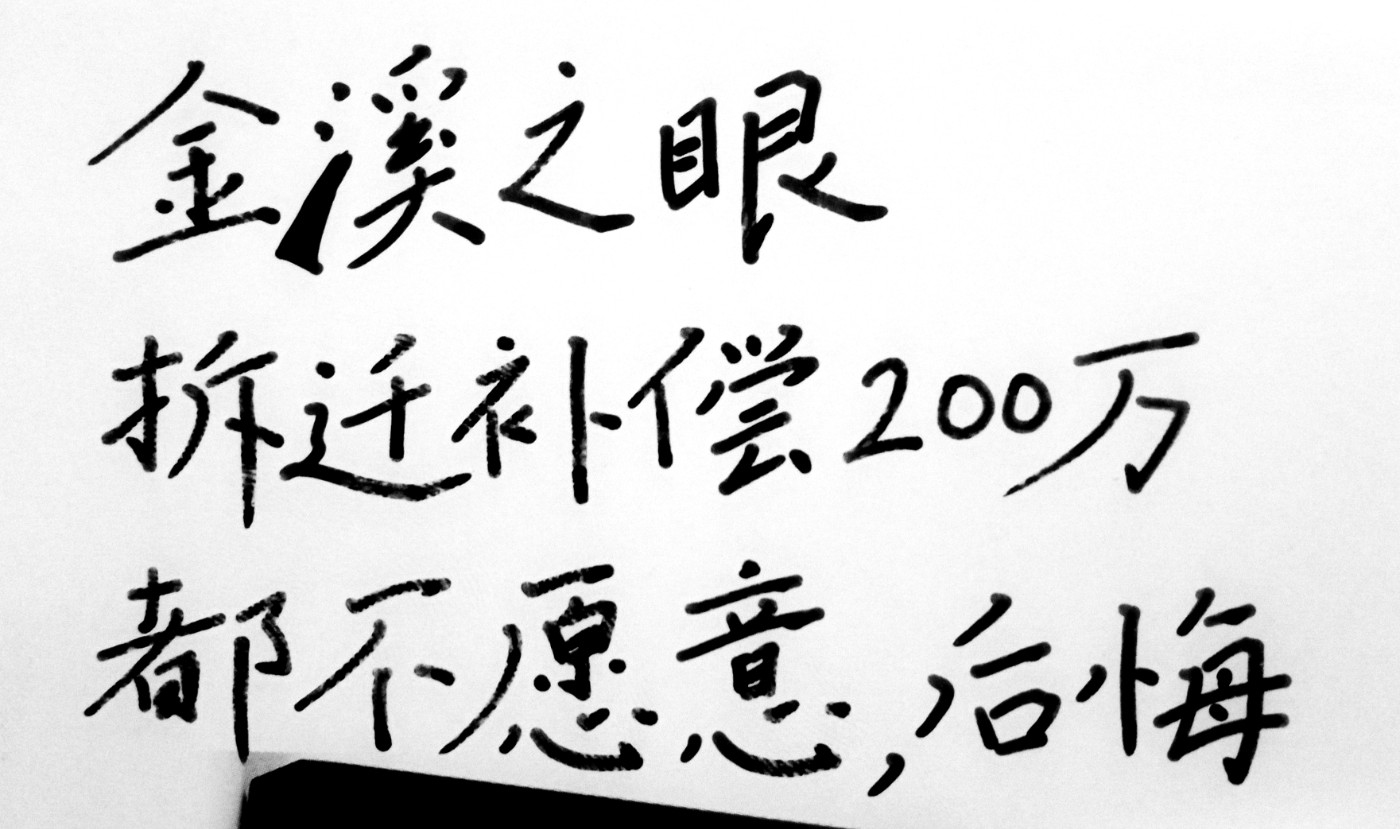 金溪之眼
拆迁补偿200万
都不愿意,后悔